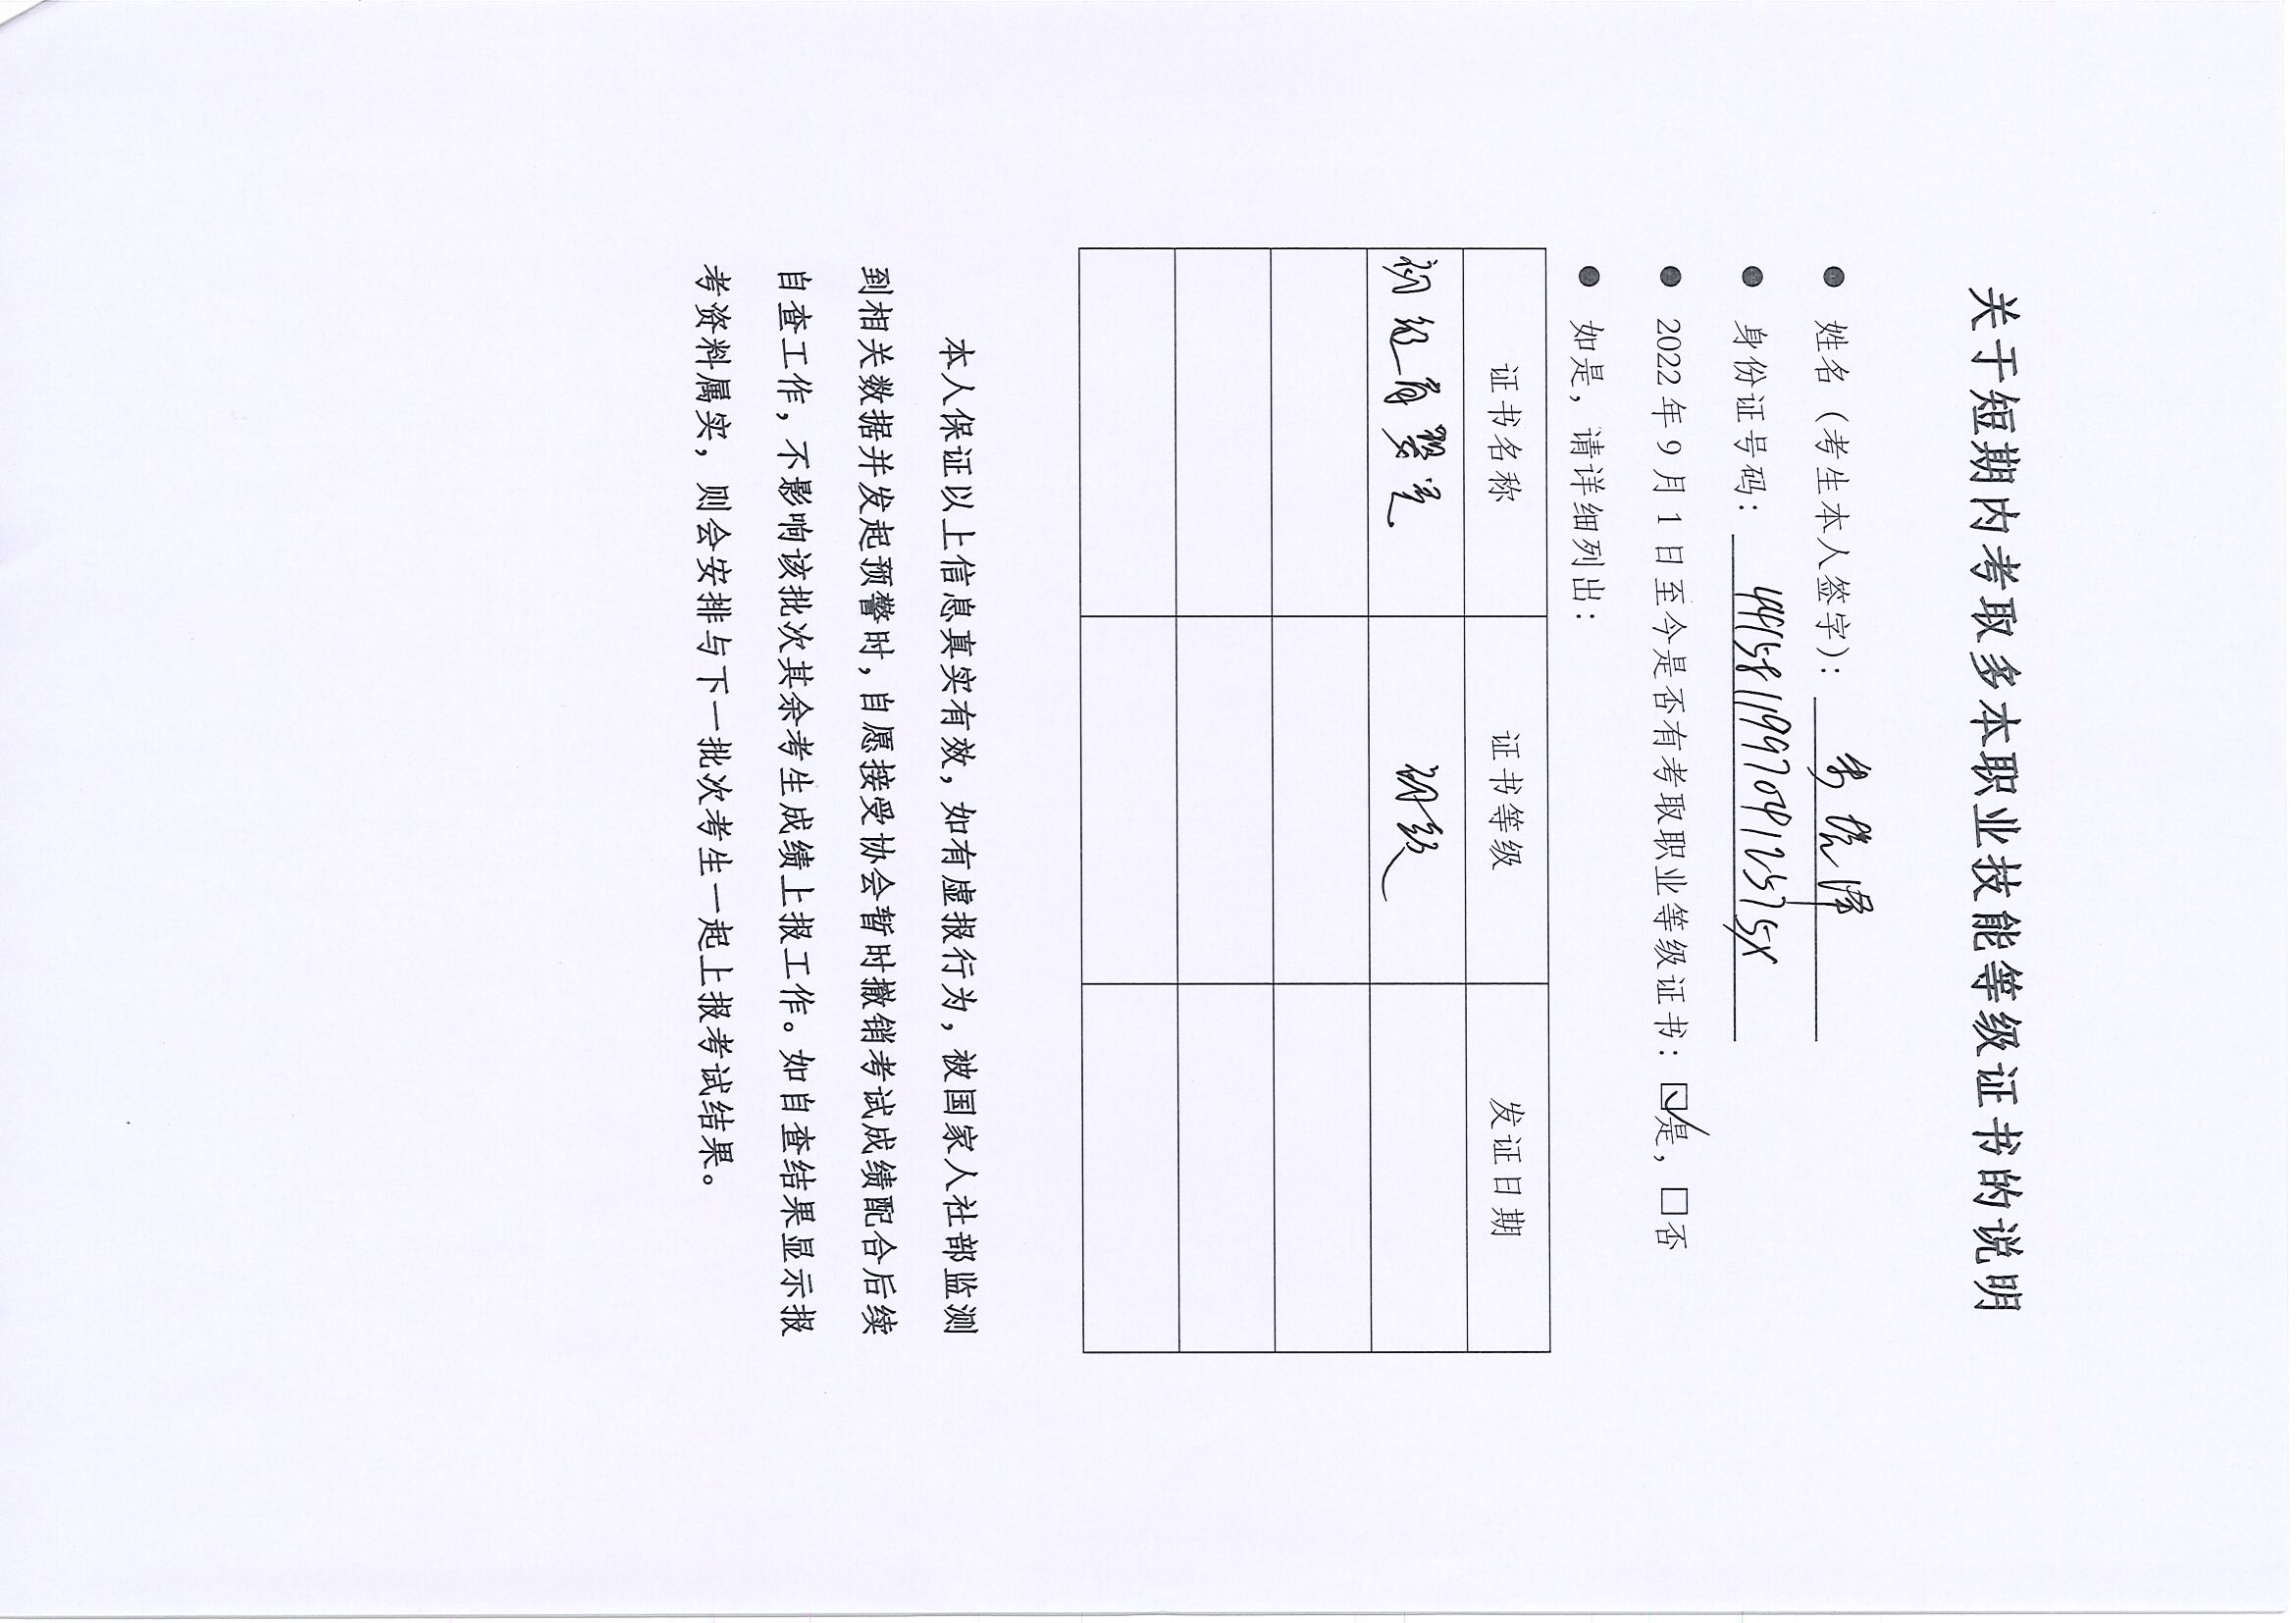 关于短期内考取多本职业技能等级证书的说明
● 姓名（考生本人签字）：
● 身份证号码：
● 2022年9月1日至今是否有考取职业等级证书：☑是，□否
● 如是，请详细列出：
证书名称 证书等级 发证日期
初级 初级
本人保证以上信息真实有效，如有虚报行为，被国家人社部监测
到相关数据并发起预警时，自愿接受协会暂时撤销考试成绩配合后续
自查工作，不影响该批次其余考生成绩上报工作。如自查结果显示报
考资料属实，则会安排与下一批次考生一起上报考试结果。